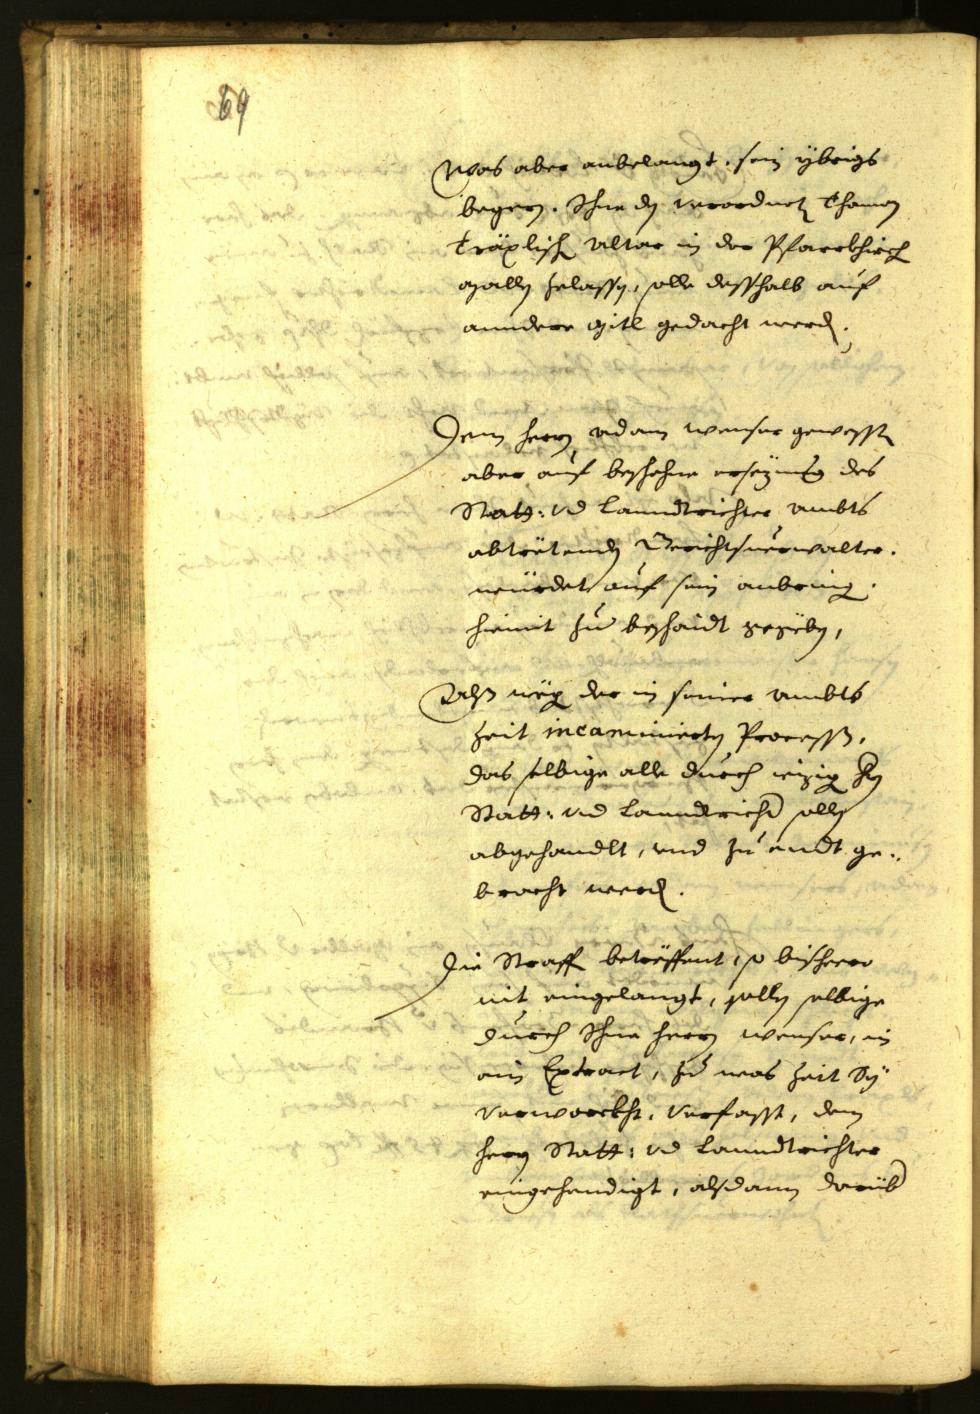 69
Was aber anbelangt, sein ÿbrigs
begern, Ihne den verordneten Thoman
Träxlisch Altar in der Pfarrkhirch
maln zelassen, solle desshalb auf
anndere mitl gedacht werden.
Dem herrn Adam Wenser gewesst
aber auf beschehne ersezung des
Statt: vnd Lanndtrichter Ambts
abtrëtenden Gerichtsuerwalter.
würdet auf sein anbring.
hiemit zu beschaidt gegëben,
Dass wëgen der in seiner Ambts
zeit incaminierten Processen,
das selbige alle durch iezigen Hern
Statt: vnd Lanndtrichter sollen
abgehandlt, vnd zu enndt ge:
bracht werden.
Die Straff betrëffent, so bissheero
nit eingelangt, sollen selbige
durch Ihne herrn Wenser, in
ain Extract, zu was zeit Sÿ
verworckht, verfasst, dem
herrn Statt: vnd Lanndtrichter
eingehendigt, alssdann darüber